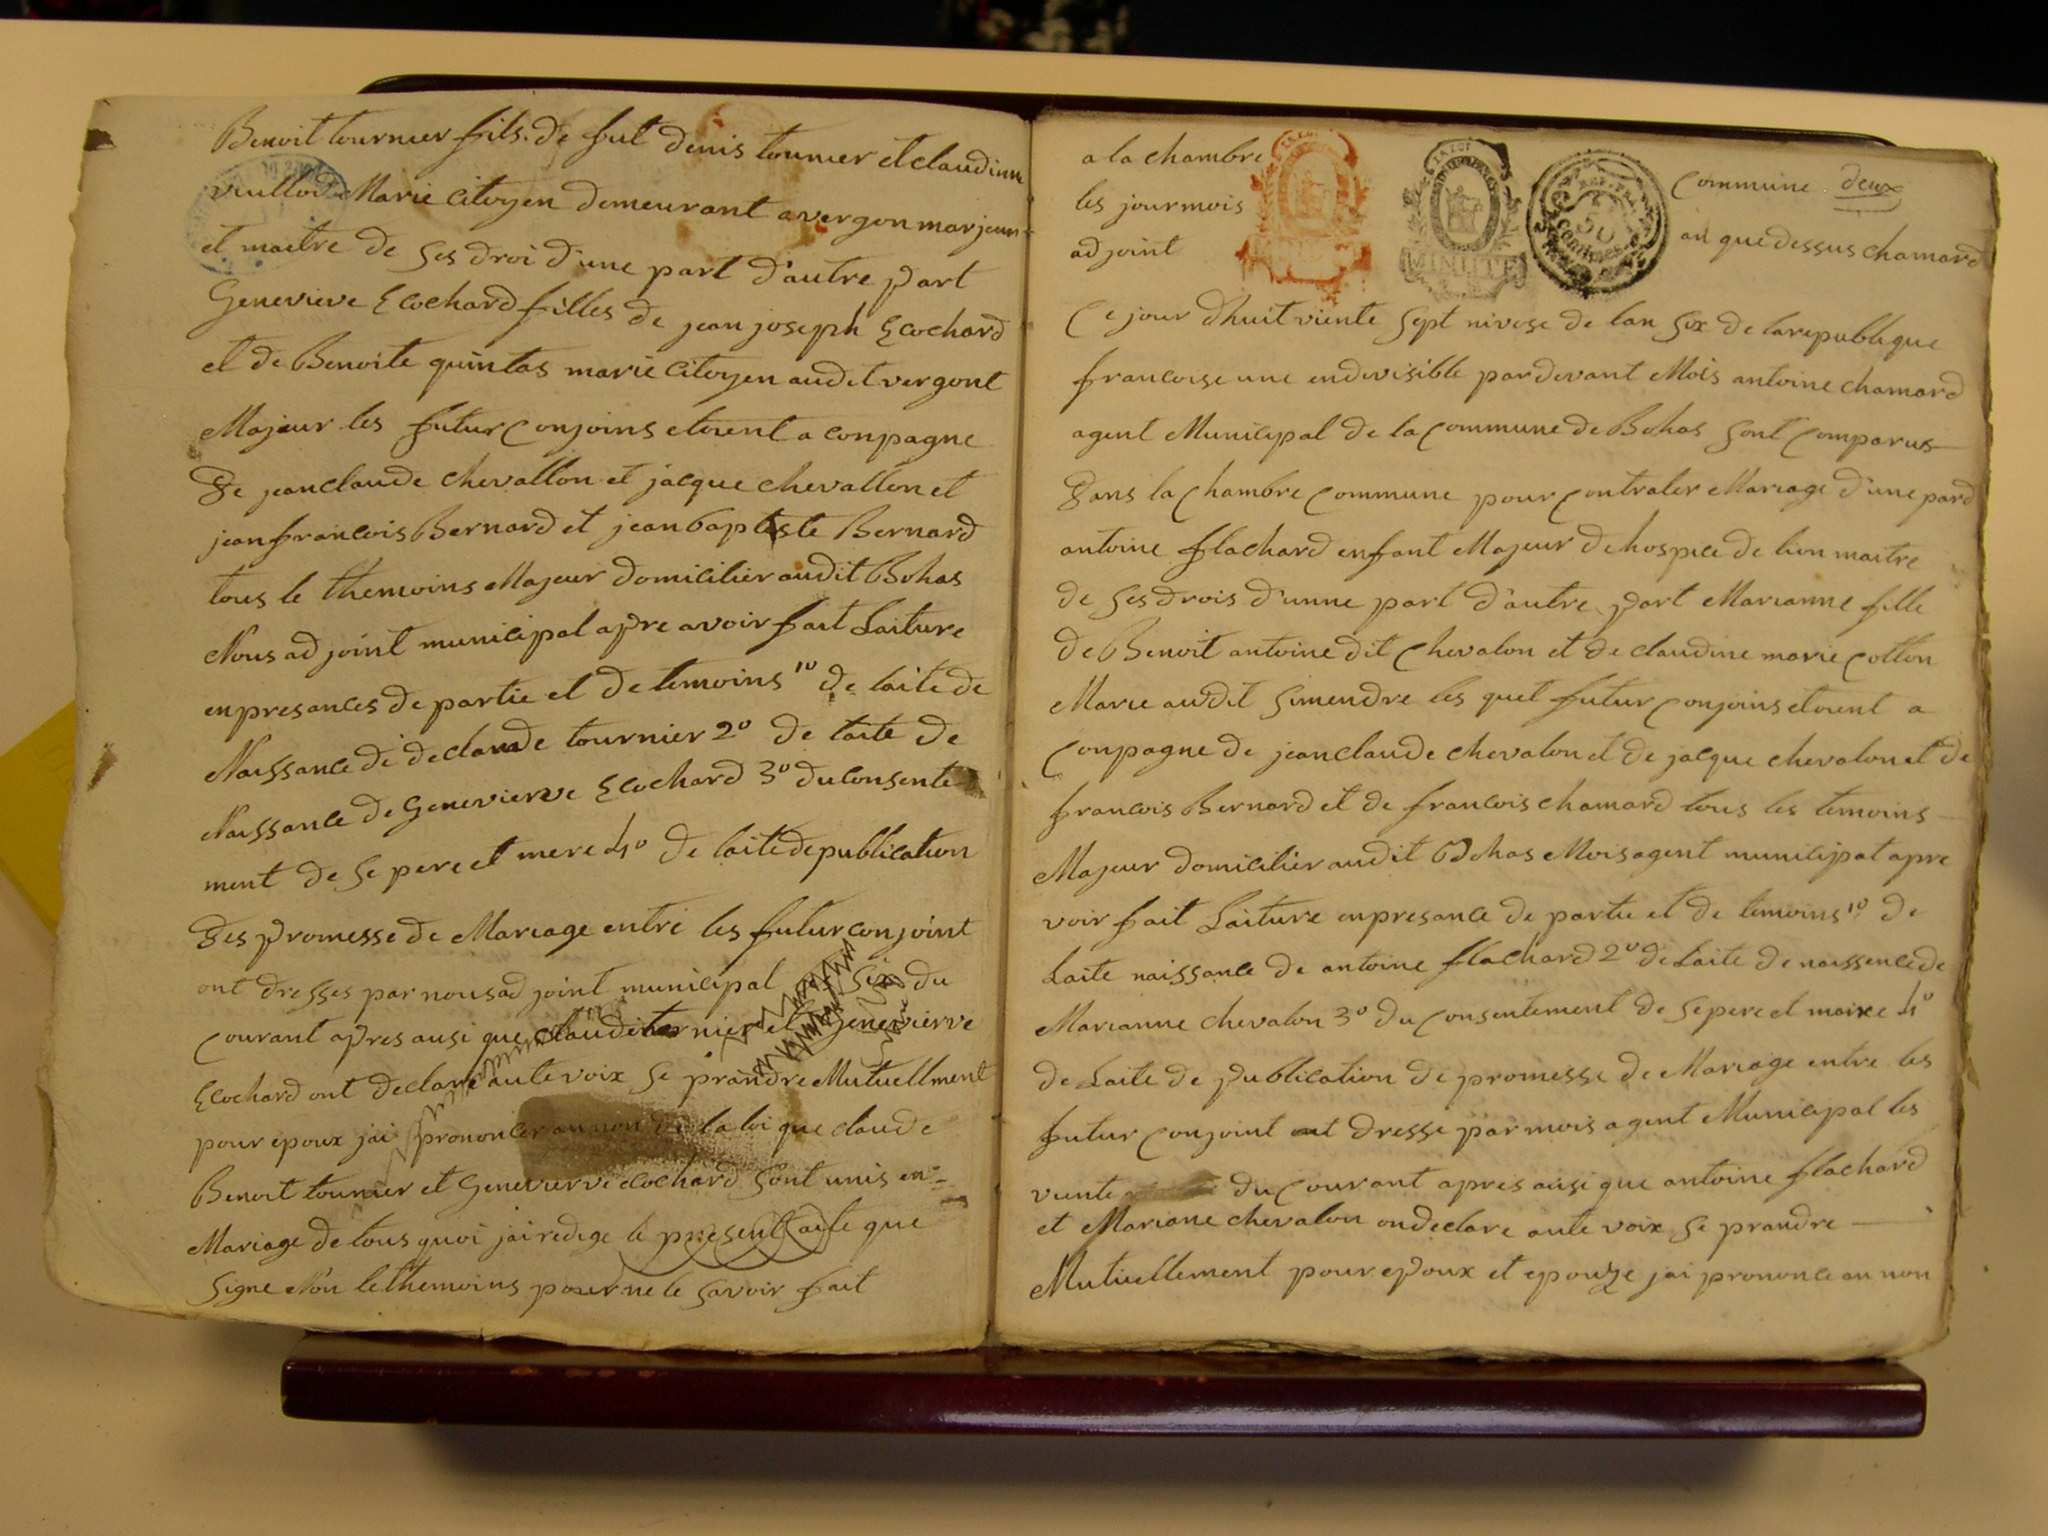 Benoit tournier fils de fut denis tournier et claudinne
vuillod Marie Citoyen demeurant a vergon marjeur
et maitre de ses droi d'une part d'autre part
Genevieve Ecochard filles de jean joseph Ecochard
et de Benoite quintas marie Citoyen audit vergont
Majeur les futur Conjoins etoient a conpagne
De jean claude chevallon et jacque chevallon et
jean francois Bernard et jean baptiste Bernard
tous le themoins Majeur domicilier audit Bohas
Nous adjoint municipal apre avoir fait Laiture
en presances de partie et de temoins 1º de laite de
Naissance de claude tournier 2º de laite de
Naissance de Genevierve Ecochard 3º du Consente
ment de se pere et mere 4º de laite de publication
Des promesse de Mariage entre les futur conjoint
ont dresses par nous adjoint municipal six du
Courant apres ausi que et Genevierve
Ecochard ont declare aute voix se prandre Mutuellment
pour epoux jai prononcer au non de la loi que claude
Benoit tournier et Genevierve ecochard sont unis en
Mariage de tous quoi jai redige le present aite que
Signe Non le themoins pouer ne le savoir fait
a la chambre Commune deux
les jour mois an que dessus chamard
adjoint
LA LOI
MINUTE
LA LOI
MINUTE
REP. FRA.
50
Centimes
Ce jour dhuit viente sept nivose de lan six de la republique
francoise une endivisible pardevant Mois antoine chamard
agent Municipal de la Commune de Bohas sont Comparus
Dans la Chambre Commune pour Contraler Mariage d'une pard
antoine flachard enfant Majeur de hospice de lion maitre
de ses drois d'unne part d'autre part Marianne fille
de Benoit antoine dit Chevalon et de claudine marie Cotton
Marie audit Simendre les quel futur Conjoins etoient a
Conpagne de jean claude chevalon et de jacque chevalon et de
francois Bernard et de francois chamard tous les temoins
Majeur domicilier audit Bohas Mois agent municipal apre
voir fait Laiture en presance de partie et de temoins 1º de
Laite naissance de antoine flachard 2º de Laite de naissence de
Marianne chevalon 3º du Consentement de se pere et maire 4º
de Laite de publication de promesse de Mariage entre les
futur Conjoint ont dresse par mois agent Municipal les
viente du Courant apres ausi que antoine flachard
et Mariane chevalon on declare aute voix se prandre
Mutiellement pour epoux et epouze jai prononce au non